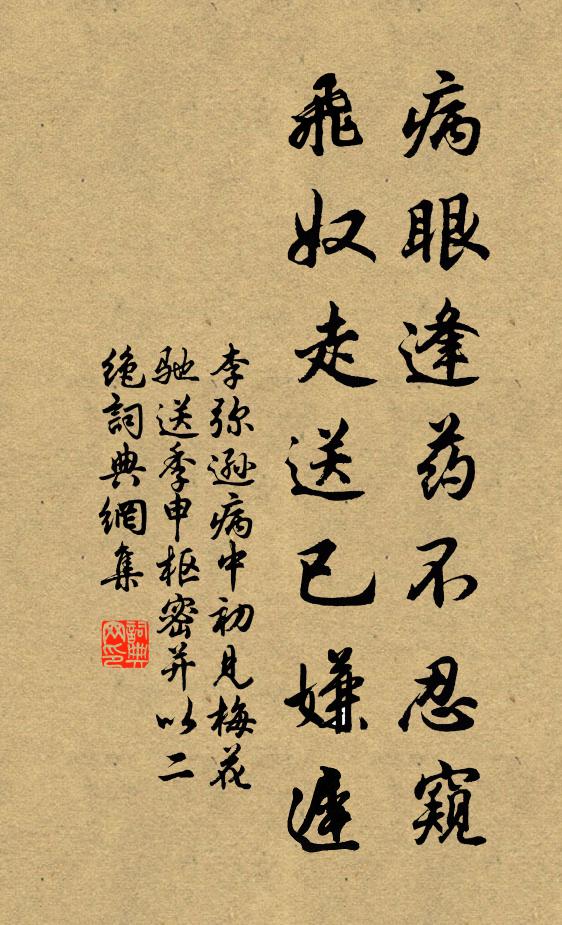 病眼逢药不忍窥
飛奴走送已嫌遲
李弥遜病中初見梅花
馳送季申枢密并以二
绝詞典網集
詞典
网印